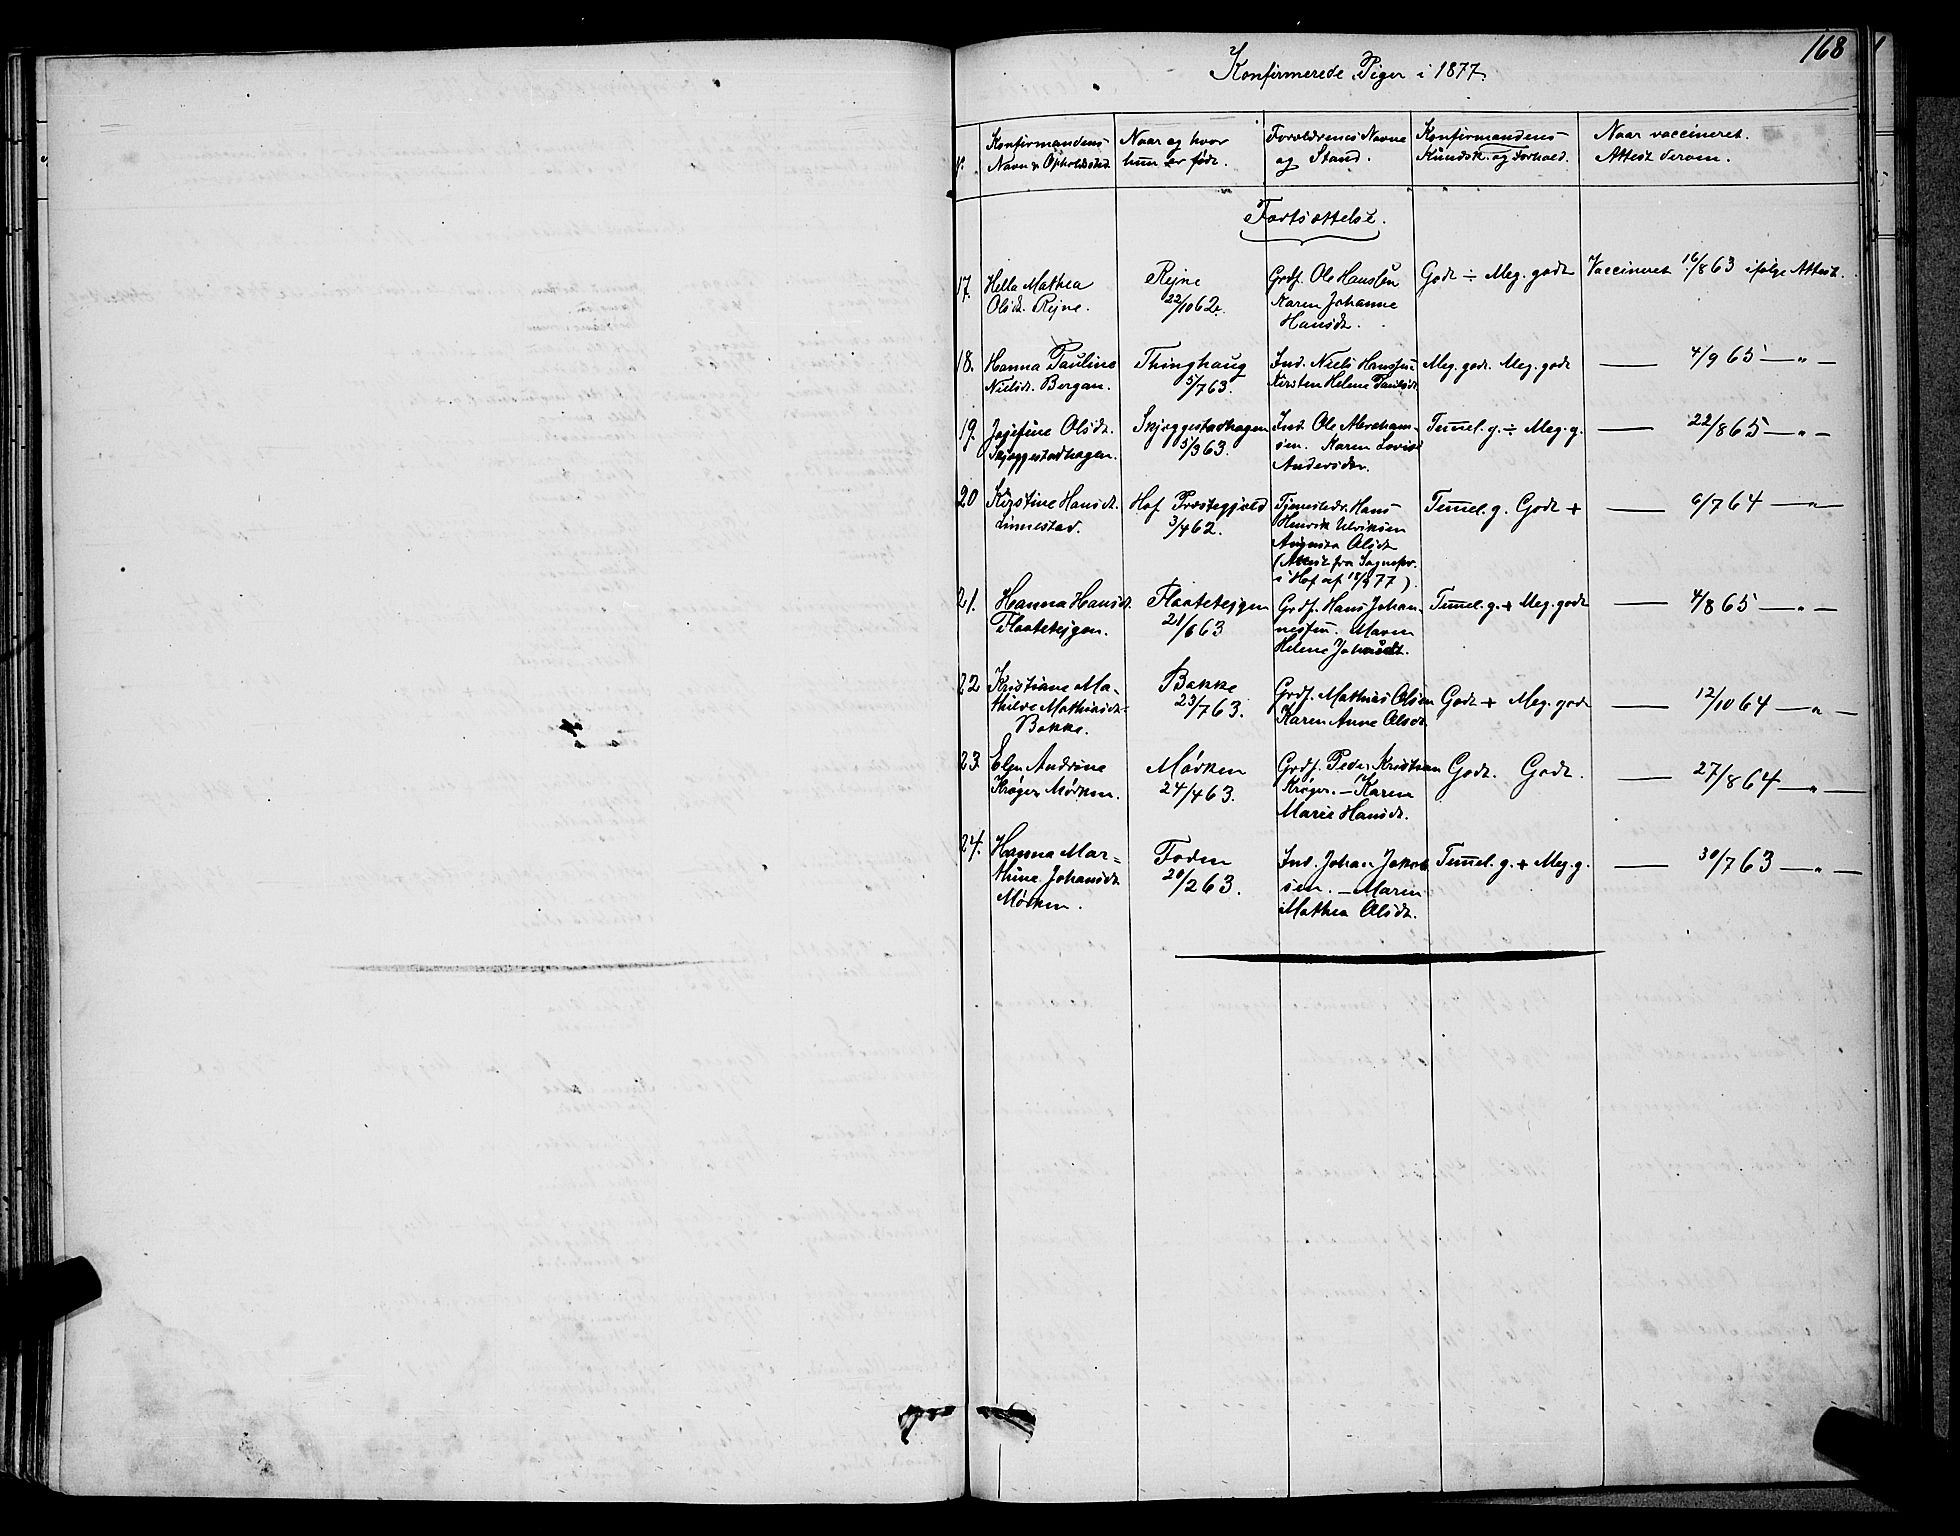 168
Konfirmerede Piger i 1877.
Konfirmandens Navn & Opholdssted.
Naar og hvor hun er født.
Forældrenes Navne og Stand.
Konfirmandens Kundsk. og Forhold.
Naar vaccineret. Attest derom.
Fortsættelse.
17. Hella Mathea Olsdt. Rejne. Rejne 22/10 62. Grdf. Ole Hanssen Karen Johanne Hansdt. Godt ÷ Meg. godt Vaccineret 16/8 63 ifølge Attest.
18. Hanna Pauline Nielsdt. Bergan. Thinghaug 5/7 63. Ind. Niels Hanssen Kirsten Helene Paulsdt. Meg. godt. Meg. godt — 4/9 65 — „ —
19. Josefine Olsdt. Skjæggestadhagen. Skjæggestadhagen 5/3 63. Ind. Ole Abraham-sen. Karen Lovise Andersdtr. Temel. g. ÷ Meg. g. — 22/8 65 — „ —
20 Kirstine Hansdt. Linnestad. Hof Præstegjæld 3/4 62. Tjenestedr. Hans Henrik Ulriksen Augusta Olsdt (Attest fra Sognepr. i Hof af 18/9 77) Temel. g. Godt + — 6/7 64 — „ —
21. Hanna Hansdt. Flaatetejgen. Flaatetejgen 21/6 63 Grdf. Hans Johan-nessen. Maren Helene Johansdt. Temel. g. + Meg. godt — 4/8 65 — „ —
22 Kristiane Ma-thilde Mathiasdt. Bakke. Bakke 23/7 63. Grdf. Mathias Olsen Karen Anne Olsdt. Godt + Meg. godt — 12/10 64 — „ —
23 Elen Andrine Krøger Mørken. Mørken 24/4 63. Grdf. Peder Kristian Krøger. — Karen Marie Hansdt. Godt. Godt. — 27/8 64 — „ —
24. Hanna Mar-thine Johansdt. Mørken. Foden 20/2 63. Ind. Johan Jakob-sen. — Maren Mathea Olsdt. Temel. g. + Meg. g. — 30/7 63 — „ —